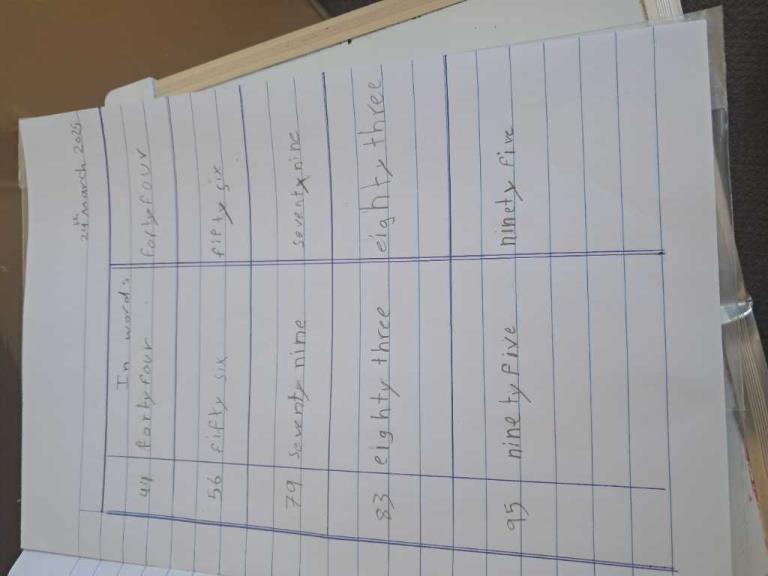 24th March 2025
In words
44 forty four forty four
56 fifty six fifty six
79 seventy nine seventy nine
83 eighty three eighty three
95 ninety five ninety five